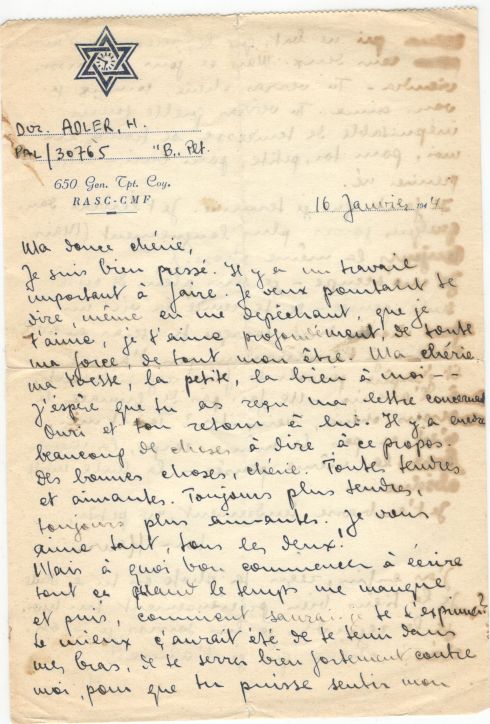 Dvr. ADLER, H.
PAL/30765 "B" Plt.
650 Gen. Tpt. Coy.
RASC-CMF
16 Janvier 194
Ma douce chérie,
Je suis bien pressé. Il y a un travail
important à faire. Je veux pourtant te
dire, même en me dépêchant, que je
t'aime, je t'aime profondément, de toute
ma force, de tout mon être. Ma chérie,
ma, la petite, la bien à moi --
j'espère que tu as reçu ma lettre concernant
Ouri et ton retour à lui. Il y a encore
beaucoup de choses à dire à ce propos.
Des bonnes choses, chérie. Toutes tendres
et aimantes. Toujours plus tendres,
toujours plus aimantes. Je vous
aime tant, tous les deux!
Mais à quoi bon commencer à écrire
tout ça quand le temps me manque
et puis, comment saurai-je te l'exprimer?
Le mieux ç'aurait été de te tenir dans
mes bras, de te serrer bien fortement contre
moi, pour que tu puisse sentir mon